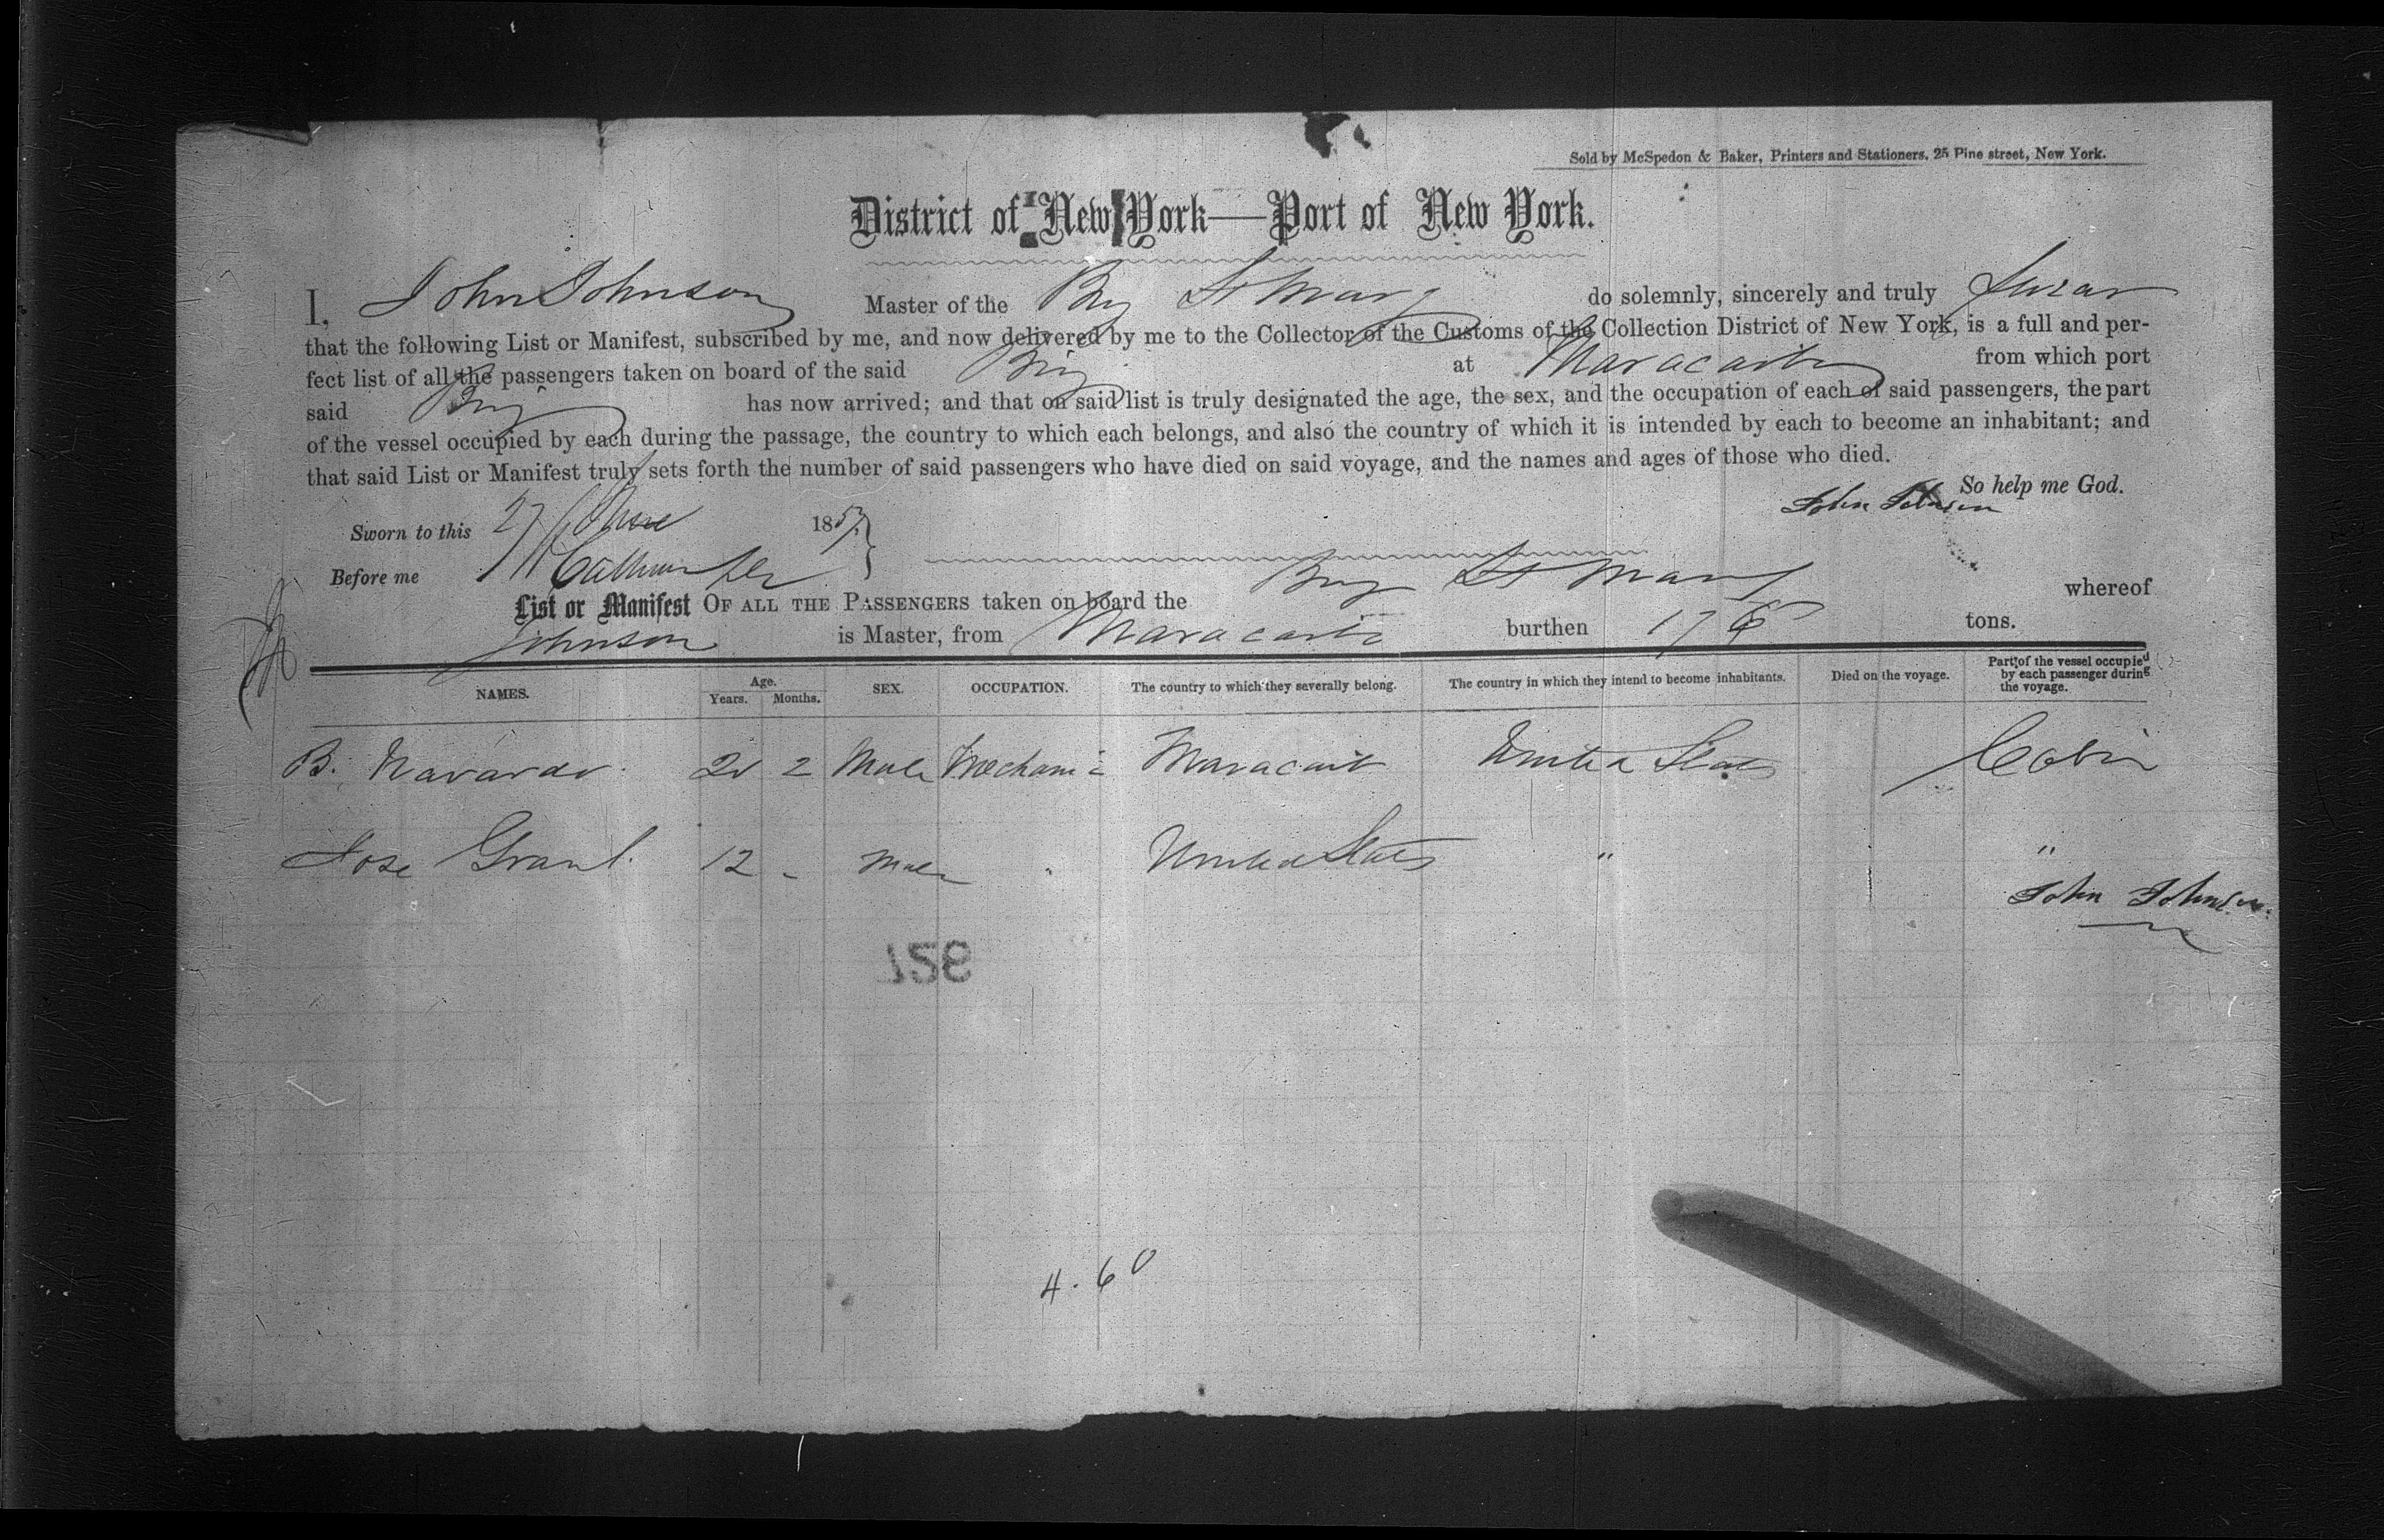 Sold by McSpedon & Baker, Printers and Stationers, 25 Pine street, New York.
District of New York—Port of New York.
I, John Johnson Master of the Brig St Mary do solemnly, sincerely and truly Swear
that the following List or Manifest, subscribed by me, and now delivered by me to the Collector of the Customs of the Collection District of New York, is a full and per-
fect list of all the passengers taken on board of the said Brig at Maracaibo from which port
said Brig has now arrived; and that on said list is truly designated the age, the sex, and the occupation of each of said passengers, the part
of the vessel occupied by each during the passage, the country to which each belongs, and also the country of which it is intended by each to become an inhabitant; and
that said List or Manifest truly sets forth the number of said passengers who have died on said voyage, and the names and ages of those who died.
So help me God.
John Johnson
Sworn to this 27 1857
Before me
List or Manifest OF ALL THE PASSENGERS taken on board the Brig St Mary whereof
Johnson is Master, from Maracaibo burthen 176 tons.
NAMES. Age. Years. Months. SEX. OCCUPATION. The country to which they severally belong. The country in which they intend to become inhabitants. Died on the voyage. Part of the vessel occupied by each passenger during the voyage.
B. Navardo 2 Male Mechanic Maracaib United States Cabin
Jose Grant 12 - Male " United States " "
John Johnson
728
4.60